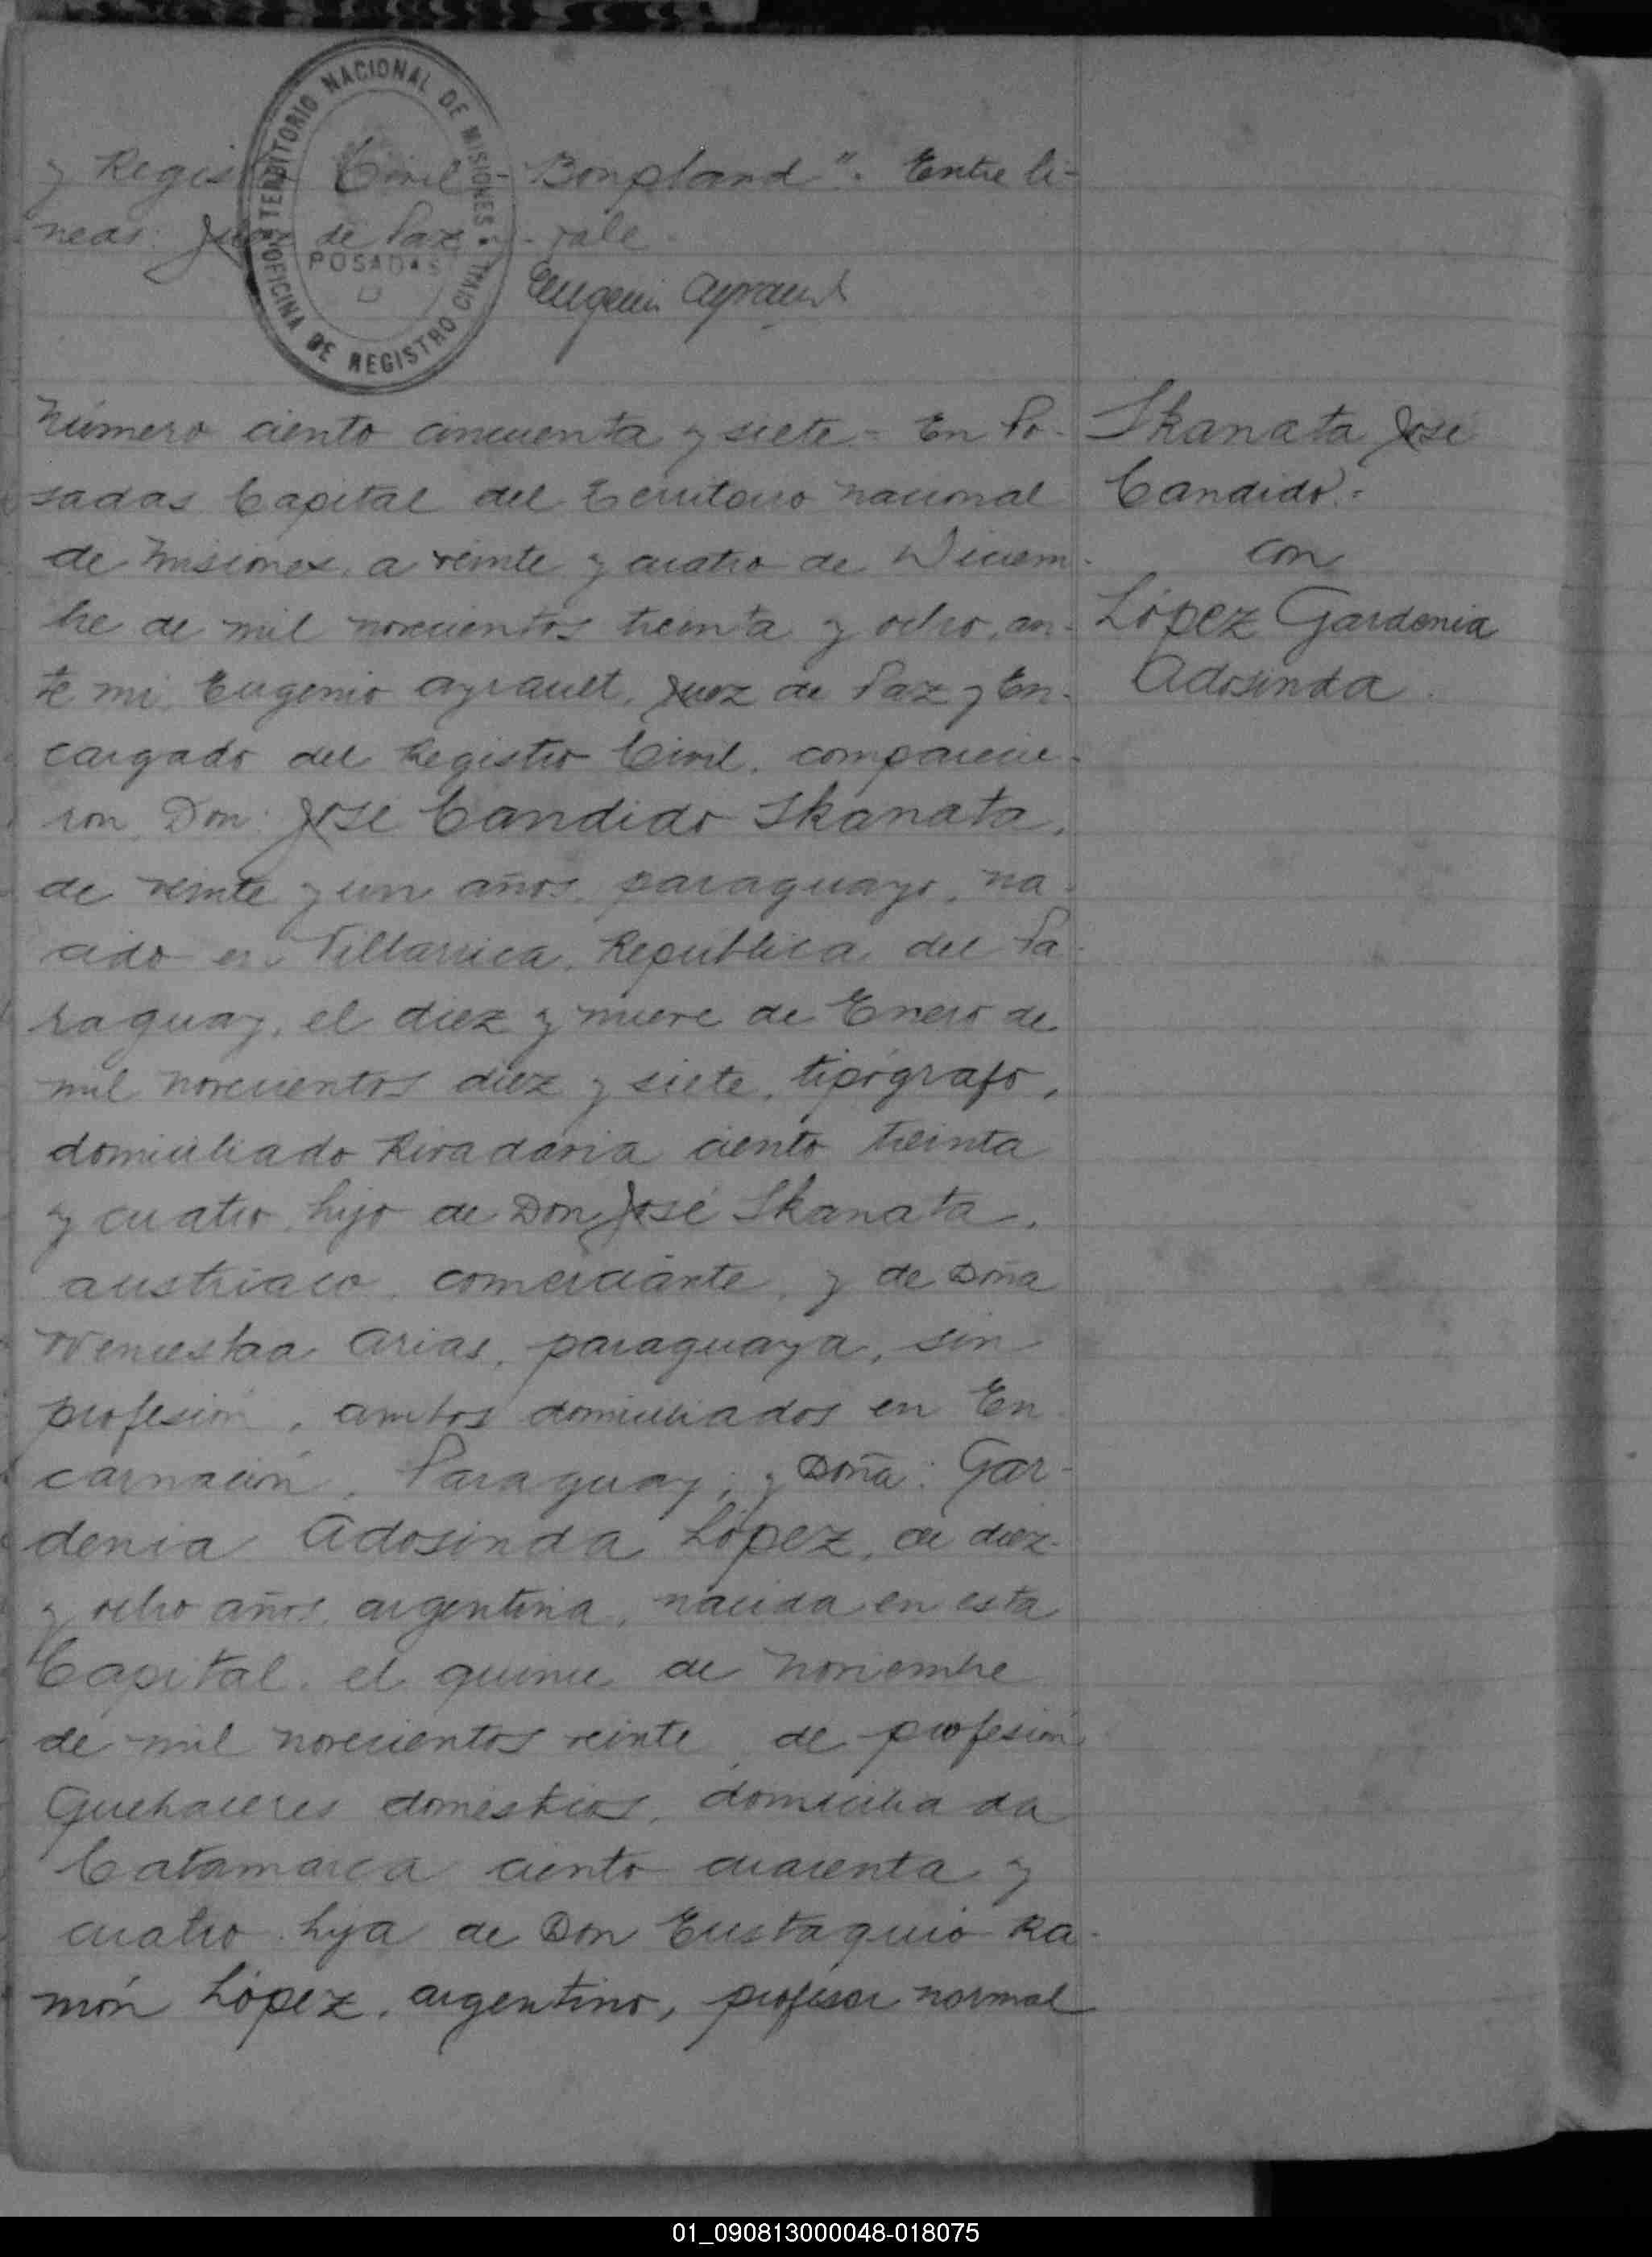 TERRITORIO NACIONAL DE MISIONES
OFICINA DE REGISTRO CIVIL
POSADAS
y Registro Civil - Bonpland". Entre li-
neas: Juez de Paz y - vale.
Eugenio Ayrault
Número ciento cincuenta y siete - En Po-
sadas Capital del Territorio Nacional
de Misiones, a veinte y cuatro de Diciem-
bre de mil novecientos treinta y ocho, an-
te mi, Eugenio Ayrault, Juez de Paz y En-
cargado del Registro Civil, comparecie-
ron Don: José Candido Skanata,
de veinte y un años, paraguayo, na-
cido en Villarrica, República del Pa-
raguay, el diez y nueve de Enero de
mil novecientos diez y siete, tipógrafo,
domiciliado Rivadavia ciento treinta
y cuatro, hijo de Don José Skanata,
austriaco, comerciante, y de Doña
Wenceslaa Arias, paraguaya, sin
profesión, ambos domiciliados en En-
carnación, Paraguay; y Doña: Gar-
denia Adosinda López, de diez
y ocho años, argentina, nacida en esta
Capital, el quince de Noviembre
de mil novecientos veinte, de profesión
Quehaceres domésticos, domiciliada
Catamarca ciento cuarenta y
cuatro, hija de Don Eustaquio Ra-
món López, argentino, profesor normal
Skanata José
Candido.-
con
López Gardenia
Adosinda.
01_090813000048-018075